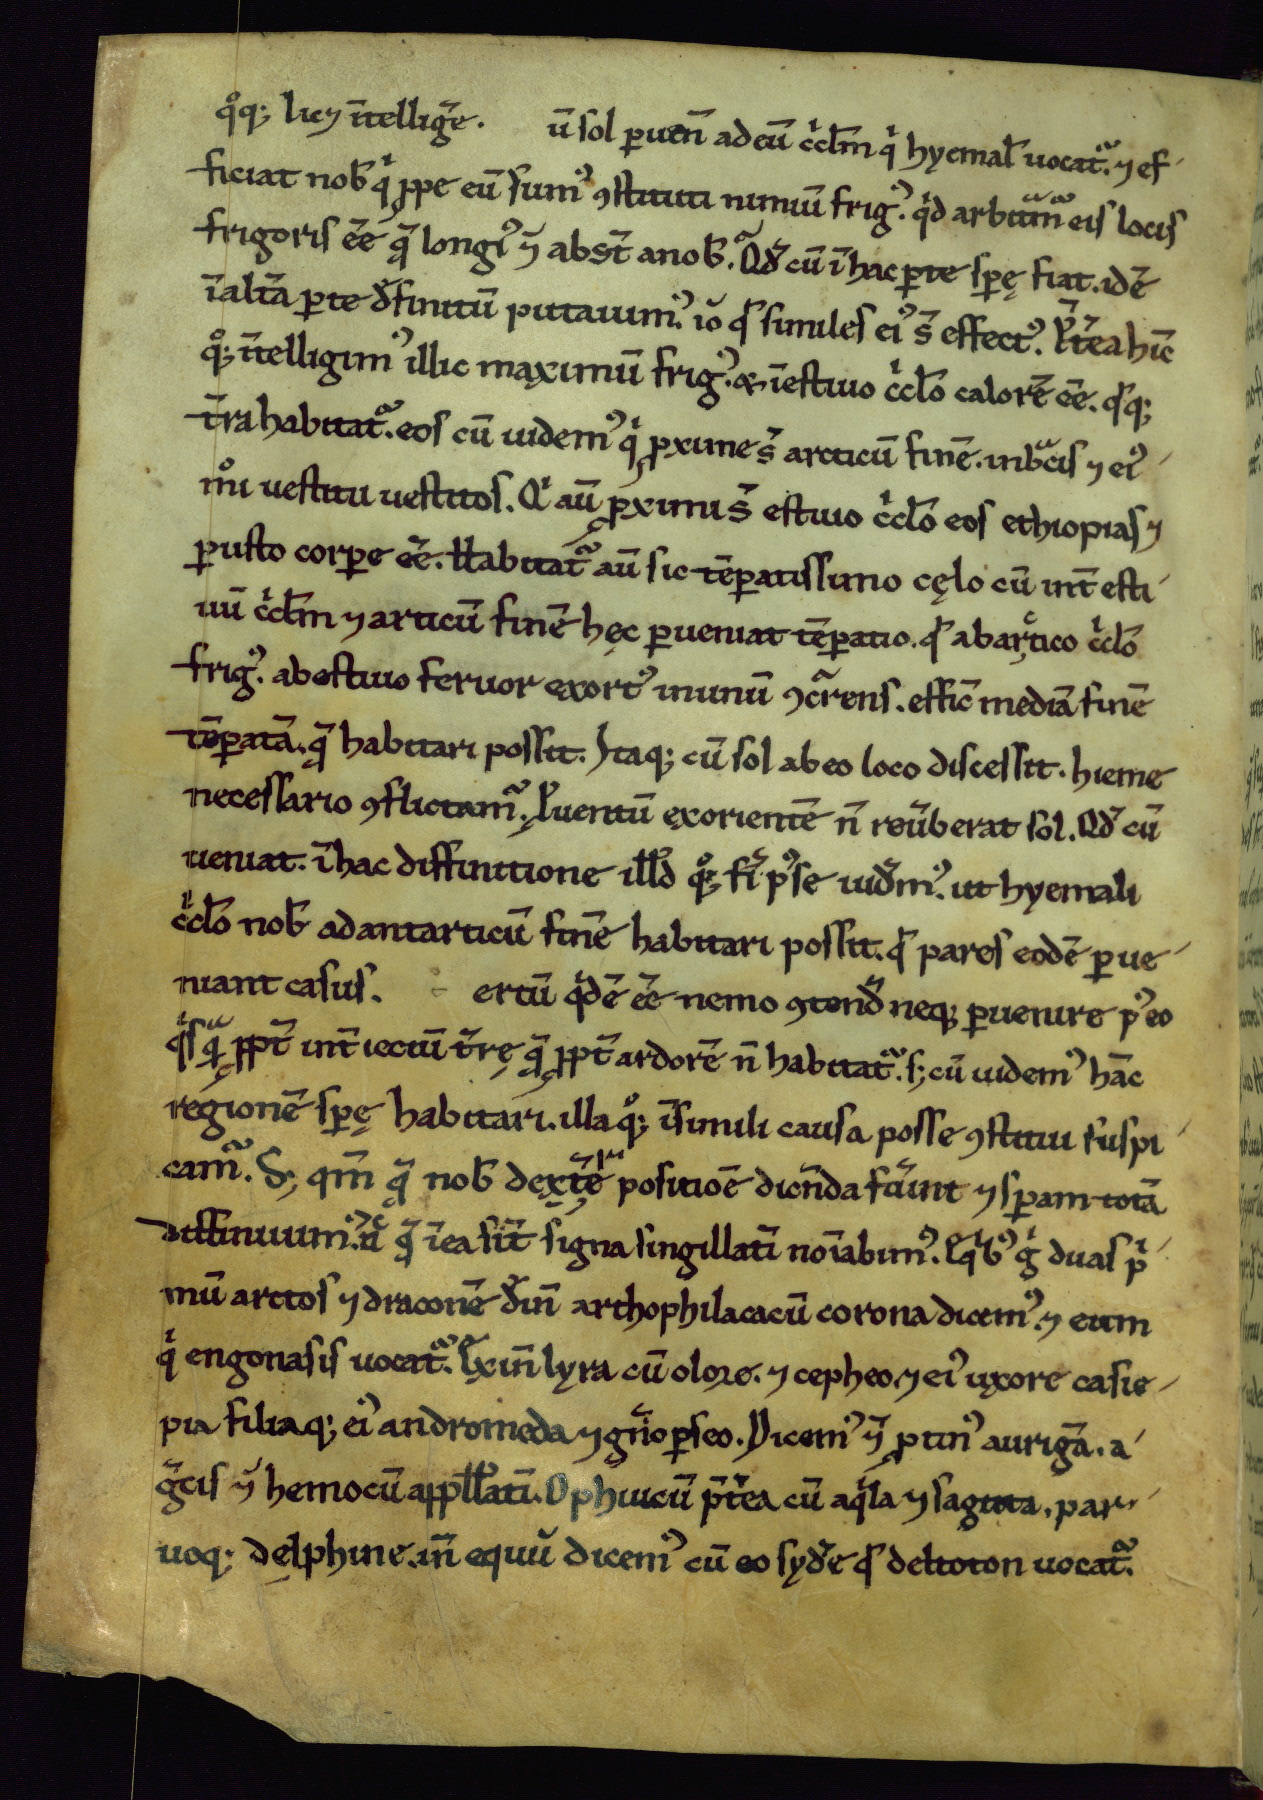 qͦq; licꝫ ītellig̃e. ū sol ꝑueñ ad eū cͥcl̄m qͥ hyemal̄ uocatᷓ. ⁊ ef-
ficiat nob̄ qͥ ꝓpe eū sumꝰ ꝯstituti nimiū frigꝰ. qͥd arbit̃amᷣ eis locis
frigoris ēe q̃ longiꝰ ⁊̃ absт̃ a nob̄. Qd̃ cū ī hac ꝑte sꝑę fiat. idē
ī alt̃a ꝑte d̃finitū putauimꝰ. iõ qͩ similes eiꝰ s̃ effectꝰ. P̃t̃ea hīc
qͦ; ītelligimꝰ illic maximū frigꝰ. & ī estiuo cͥcl̄o calorē ēe. qͩq;
t̃ra habitatᷓ. eos cū uidemꝰ qͥ ꝓxime s̃ arcticū finē. in bᵃcis ⁊ eiꝰ-
mͦi uestitu uestitos. Qͥ aū ꝓximi s̃ estiuo cͥcl̄o eos ethiopias ⁊
ꝑusto corꝑe ēe. Habitatᷓ aū sic tēꝑatissimo cęlo cū int̃ esti-
uū cͥcl̄m ⁊ articū finē hęc ꝑueniat tēꝑatio. qͩ ab arͨtico cͥcl̄o
frigꝰ. ab estiuo feruor exortꝰ in unū ꝯcᷓrens. efficīt mediā finē
tēꝑatā. q̃ habitari possit. Itaq; cū sol ab eo loco discessit. hieme
necessario ꝯflictamᷓ. Quentū exorientē n̄ reũberat sol. Qd̃ cū
ueniat. ī hac diffinitione ill̄d qͦ; fĩ pꝰse uid̃mꝰ. ut hyemali
cͥcl̄o nob̄ ad antarticū finē habitari possit. qͩ pares eodē ꝑue-
niant casus. ertū qͥdē ēe nemo ꝯtend̃ neq; ꝑuenire pꝰ eo
qͥsqᵃ ꝓpt̃ int̃iectiū t̃rę q̃ ꝓpt̃ ardorē n̄ habitatᷓ. s; cū uidemꝰ hāc
regionē sꝑę habitari. illa qͦ; ī simili causa posse ꝯstitui suspi-
camᷓ. S; qm̄ q̃ nob̄ dext̃ē positiōe dicñda fũint ⁊ sꝑam totā
diffiniuimꝰ. nͨ q̃ ī ea sīt signa singillatī noīabimꝰ. E qͥbꝰ gͥ duas pͥ-
mū arctos ⁊ draconē d̃in arthophilaca cū corona dicemꝰ. ⁊ eum
qͥ engonasis uocatᷓ. Exiñ lyra cū olore. ⁊ cepheo. ⁊ eiꝰ uxore casie-
pia filiaq; eiꝰ andromeda ⁊ gñio ꝑseo. Dicemꝰ ⁊̃ ꝓtinꝰ aurigā. a
g̃cis ũ hemocū appell̄atī. Ophiucū p̃t̃ea cū aqͥla ⁊ sagitta. par-
uoq; delphine. iñ equū dicemꝰ cū eo syd̃e qͩ deltoton uocatᷓ.